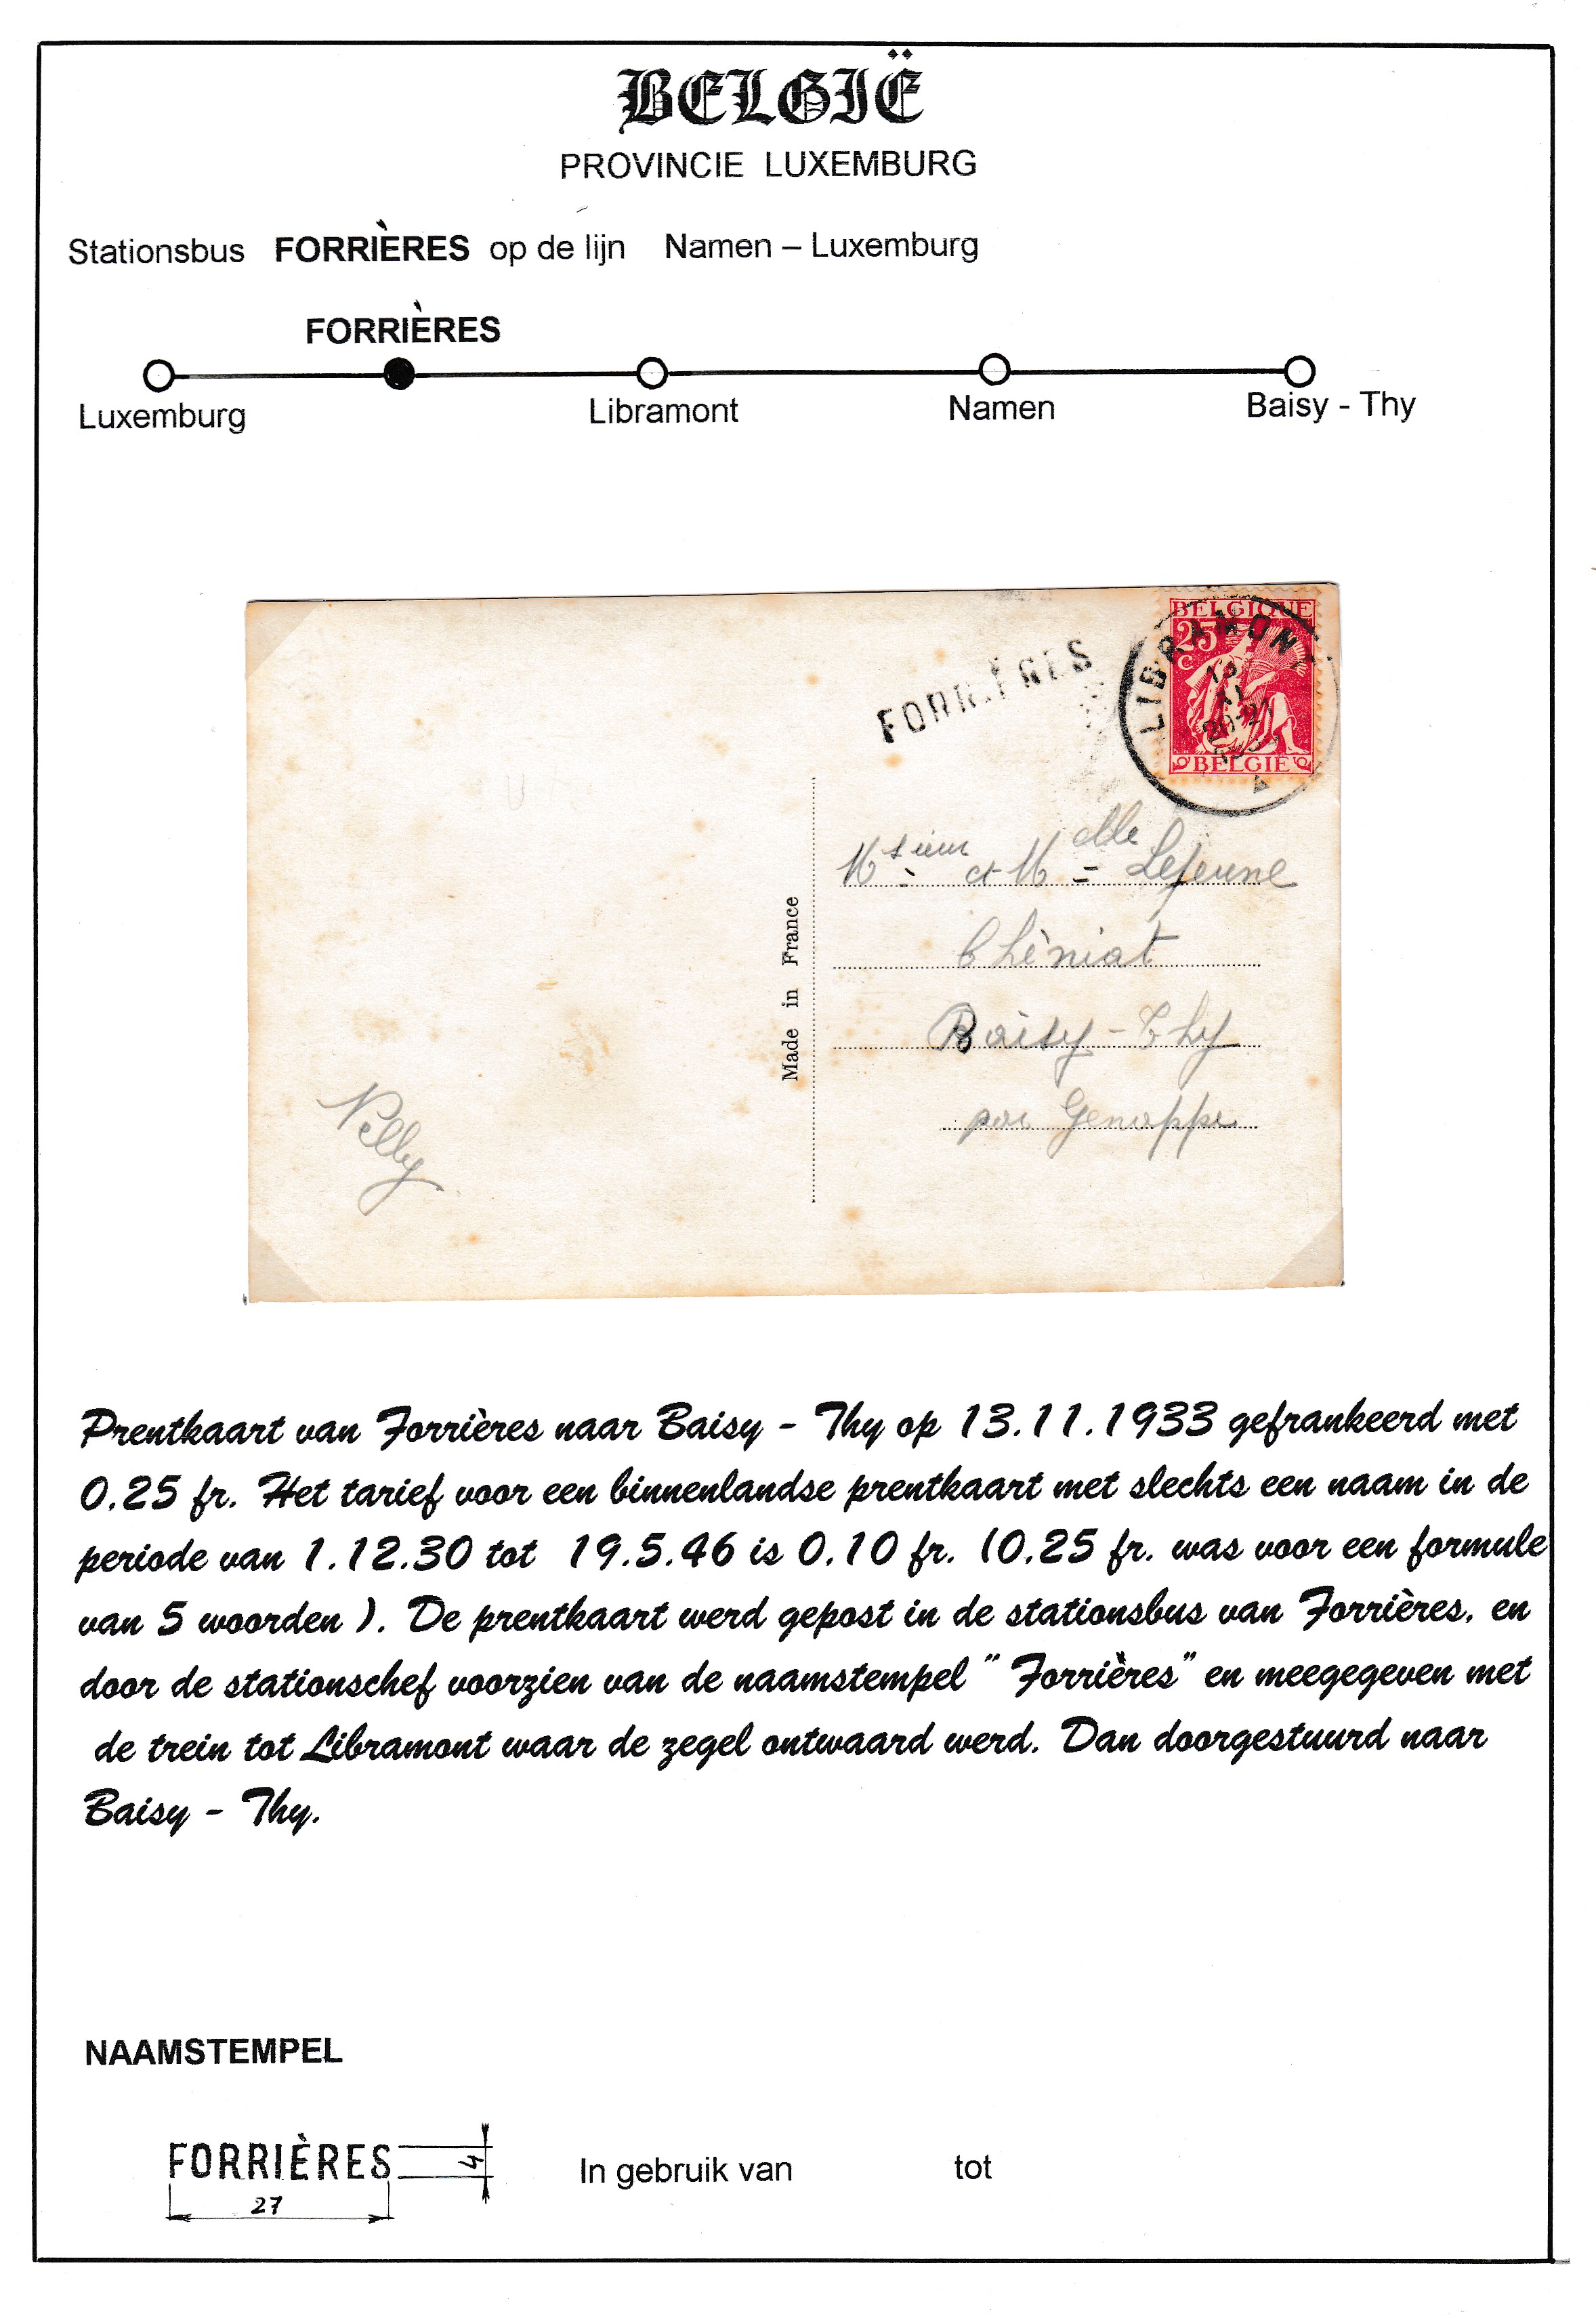 BELGIË
PROVINCIE LUXEMBURG
Stationsbus FORRIÈRES op de lijn Namen – Luxemburg
FORRIÈRES
Luxemburg Libramont Namen Baisy - Thy
FORRIÈRES
LIBRAMONT
13
11
20-21
1933
BELGIQUE
25
C
BELGIË
Msieur et Melle Lejeune
Chèniat
Baisy-Thy
par Genappe
Made in France
Nelly
Prentkaart van Forrières naar Baisy - Thy op 13.11.1933 gefrankeerd met
0.25 fr. Het tarief voor een binnenlandse prentkaart met slechts een naam in de
periode van 1.12.30 tot 19.5.46 is 0.10 fr. (0.25 fr. was voor een formule
van 5 woorden ). De prentkaart werd gepost in de stationsbus van Forrières, en
door de stationschef voorzien van de naamstempel " Forrières" en meegegeven met
de trein tot Libramont waar de zegel ontwaard werd. Dan doorgestuurd naar
Baisy - Thy.
NAAMSTEMPEL
FORRIÈRES 4
27
In gebruik van tot